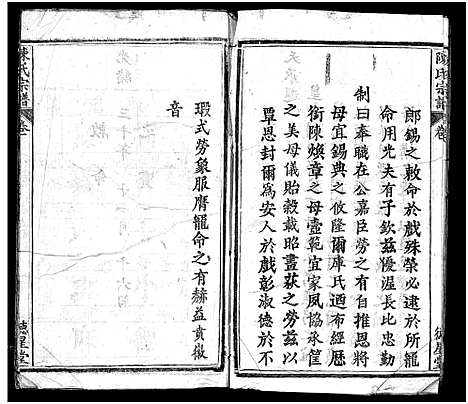 陳氏宗譜
郎錫之敕命於戲殊榮必逮於所寵
命用光夫有子欽兹優渥長比忠勤
制曰奉職在公嘉臣勞之有自推恩將
母宜錫典之攸隆爾庫氏迺布經歷
銜陳煥章之母壼範宜家夙協承筐
之美母儀貽穀載昭畫荻之勞兹以
覃恩封爾為安人於戲彰淑德於不
瑕式勞象服膺寵命之有赫益賁徽
音
陳氏宗譜
卷一
德星堂